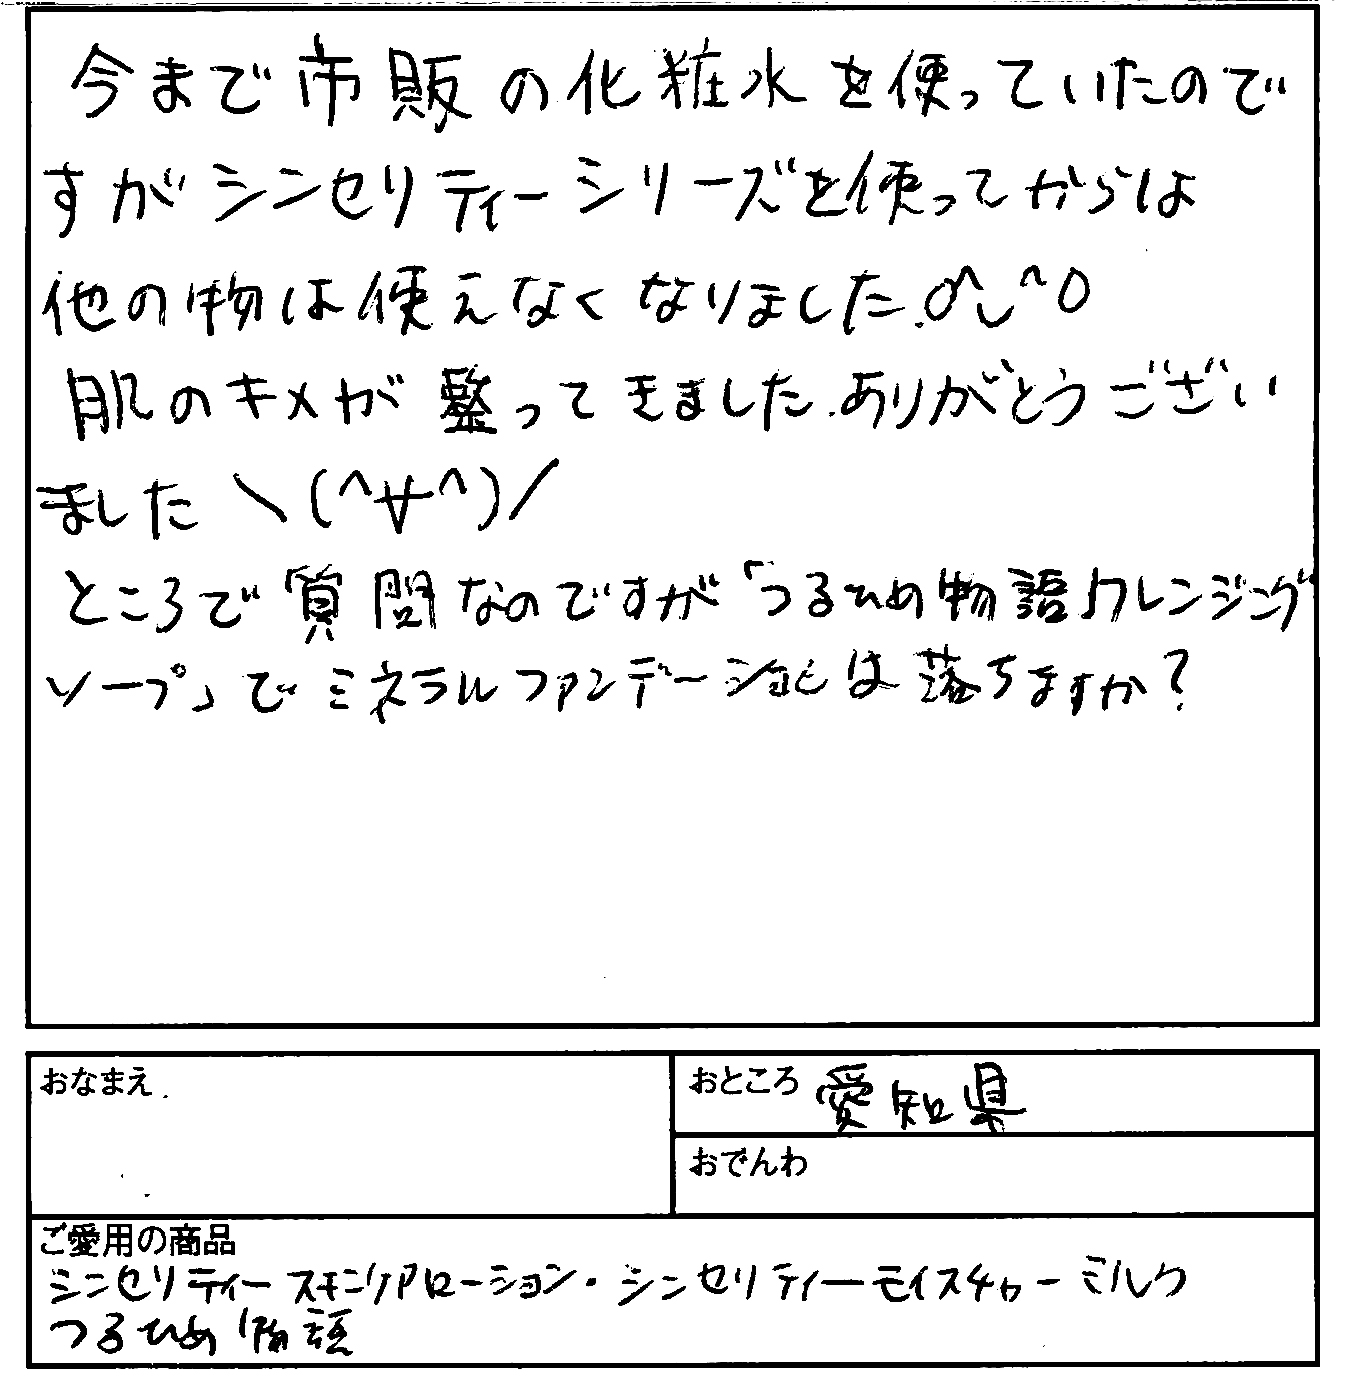 今まで市販の化粧水を使っていたので
すがシンセリティーシリーズを使ってからは
他の物は使えなくなりました.o^◡^o
肌のキメが整ってきました.ありがとうござい
ました＼(^∀^)／
ところで質問なのですが「つるひめ物語」クレンジング
ソープ」でミネラルファンデーションは落ちますか?
おなまえ
おところ 愛知県
おでんわ
ご愛用の商品
シンセリティースキンケアローション・シンセリティーモイスチャーミルク
つるひめ物語